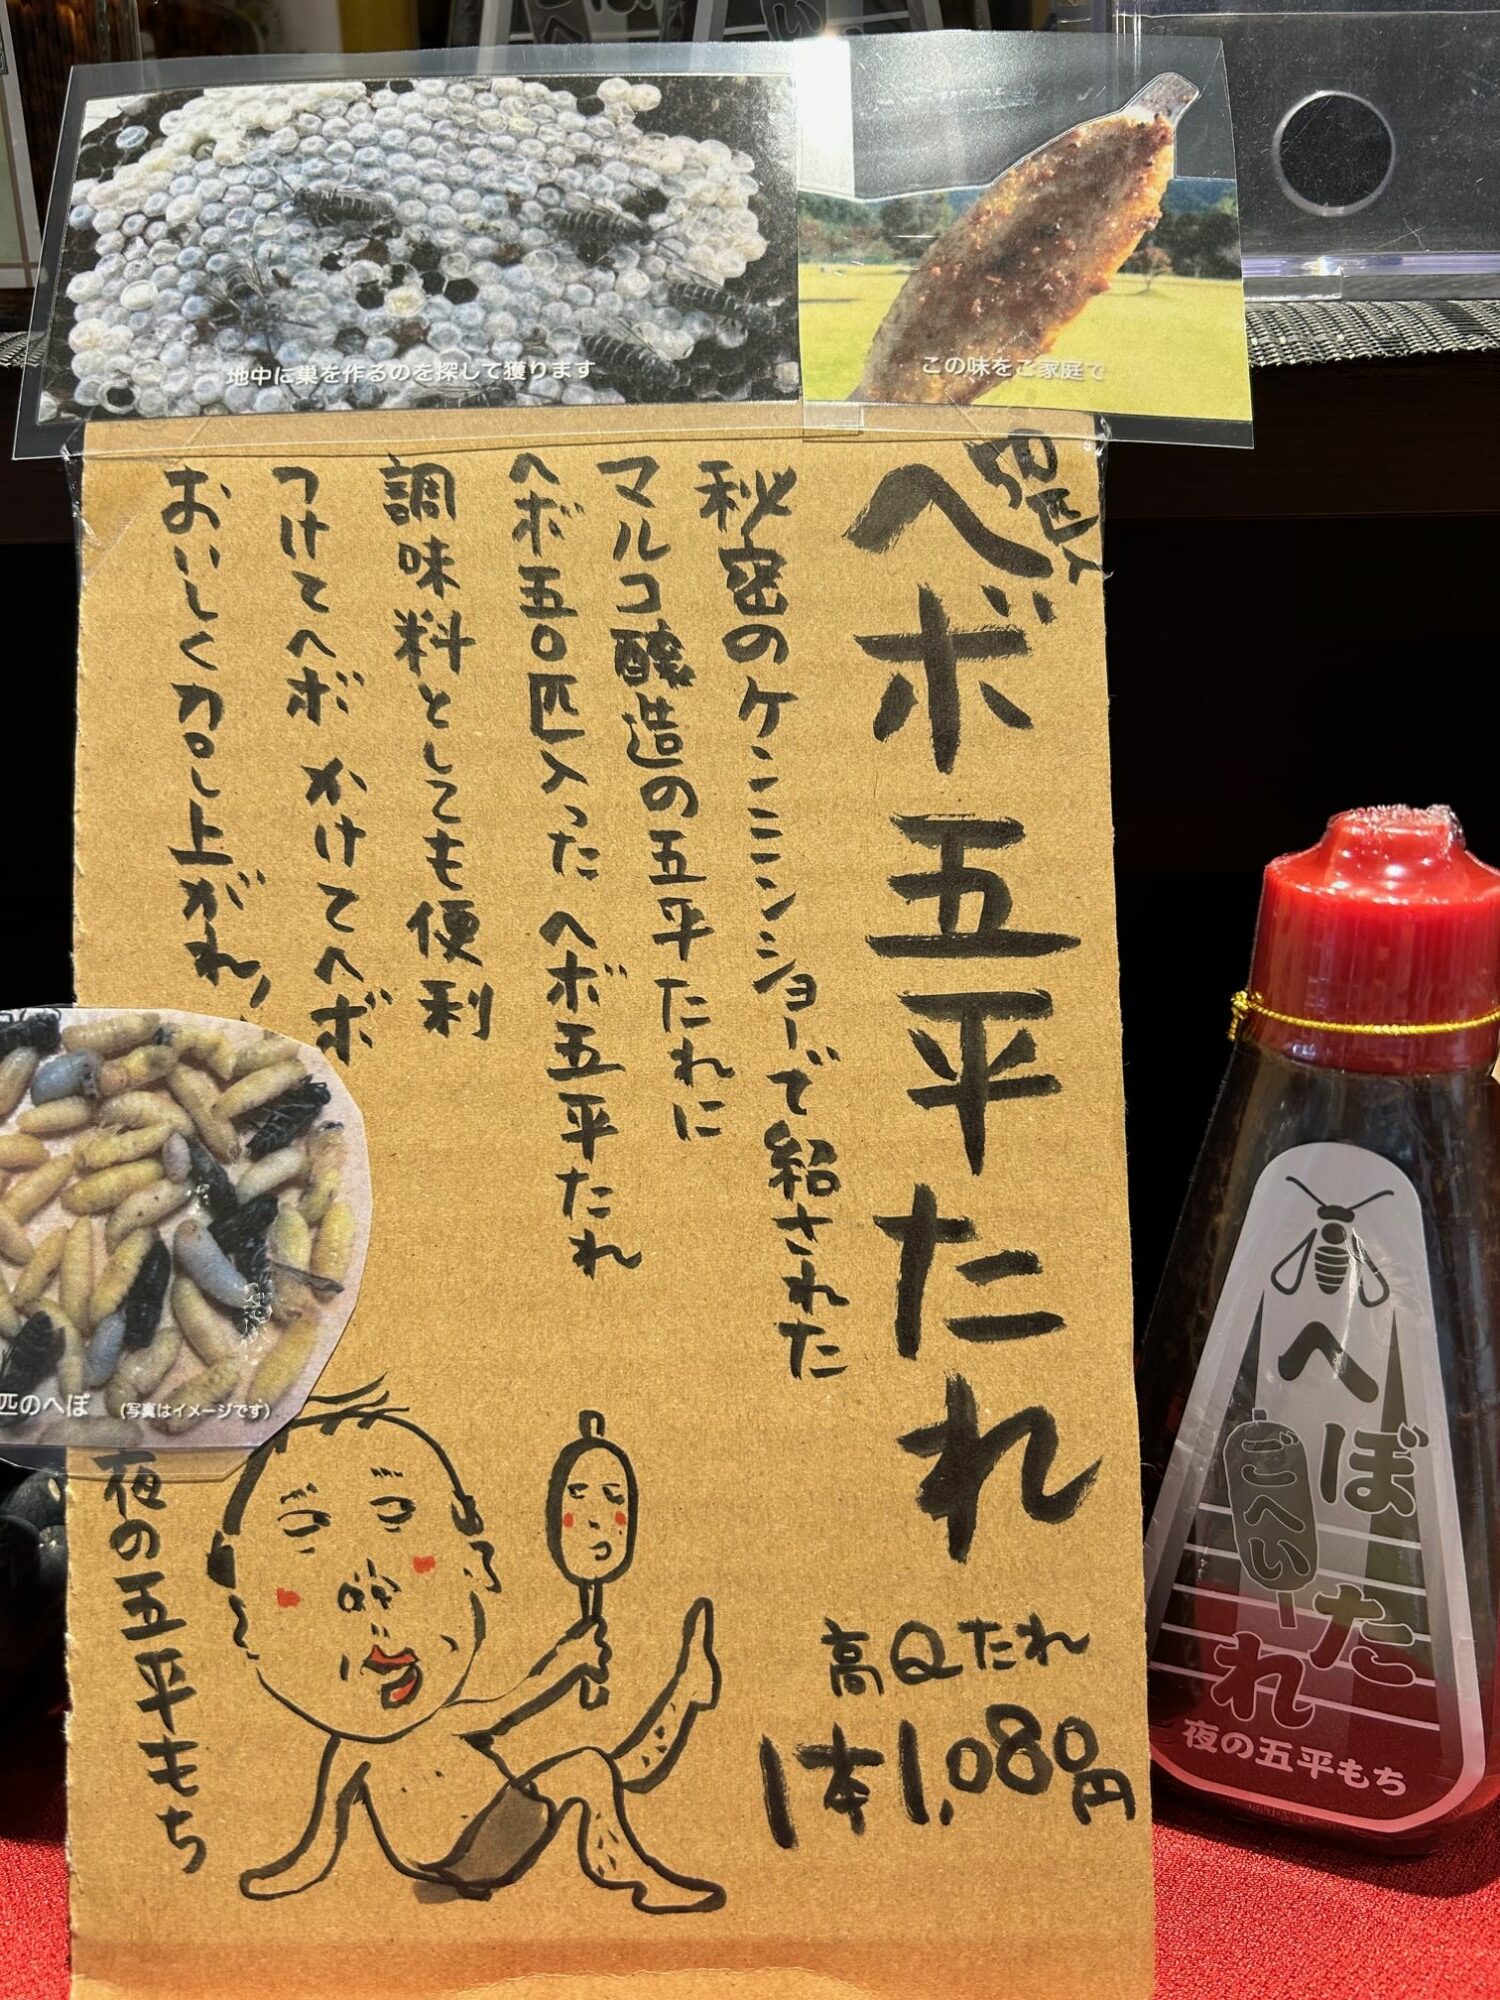 地中に巣を作るのを探して獲ります
この味をご家庭で
50匹入
ヘボ五平たれ
秘密のケンミンショーで紹された
マルコ醸造の五平たれに
ヘボ五〇匹入ったヘボ五平たれ
調味料としても便利
つけてヘボ かけてヘボ
おいしくカロし上がれ!
匹のへぼ
(写真はイメージです)
夜の五平もち
高Qたれ
1本1,080円
へぼ
ごへい
たれ
夜の五平もち